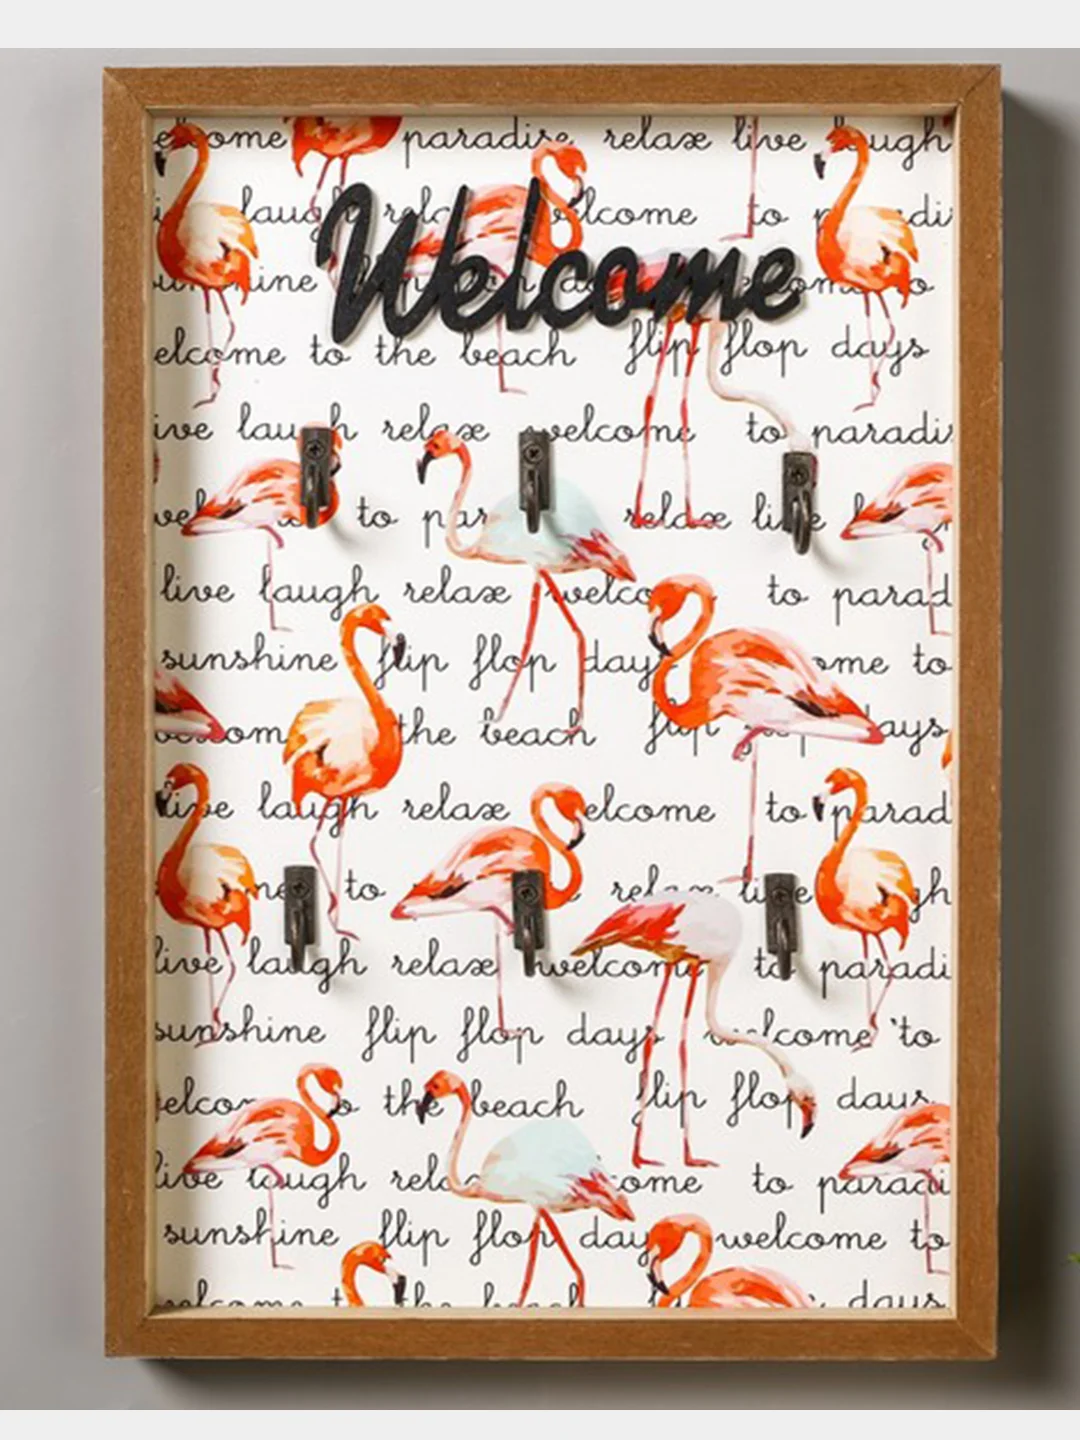 elcome paradise relax live laugh
laugh relax welcome to
Welcome
elcome to the beach flip flop days
ive laugh relax welcome to paradis
to relax live
live laugh relax welco to parad
sunshine flip flop days ome to
the beach flip days
live laugh relax elcome to parad
me to relax live gh
live laugh relax welcome to paradi
sunshine flip flop days welcome to
elco the beach flip flop days
live laugh rela come to paradi
sunshine flip flop day welcome to
elcome the beach days